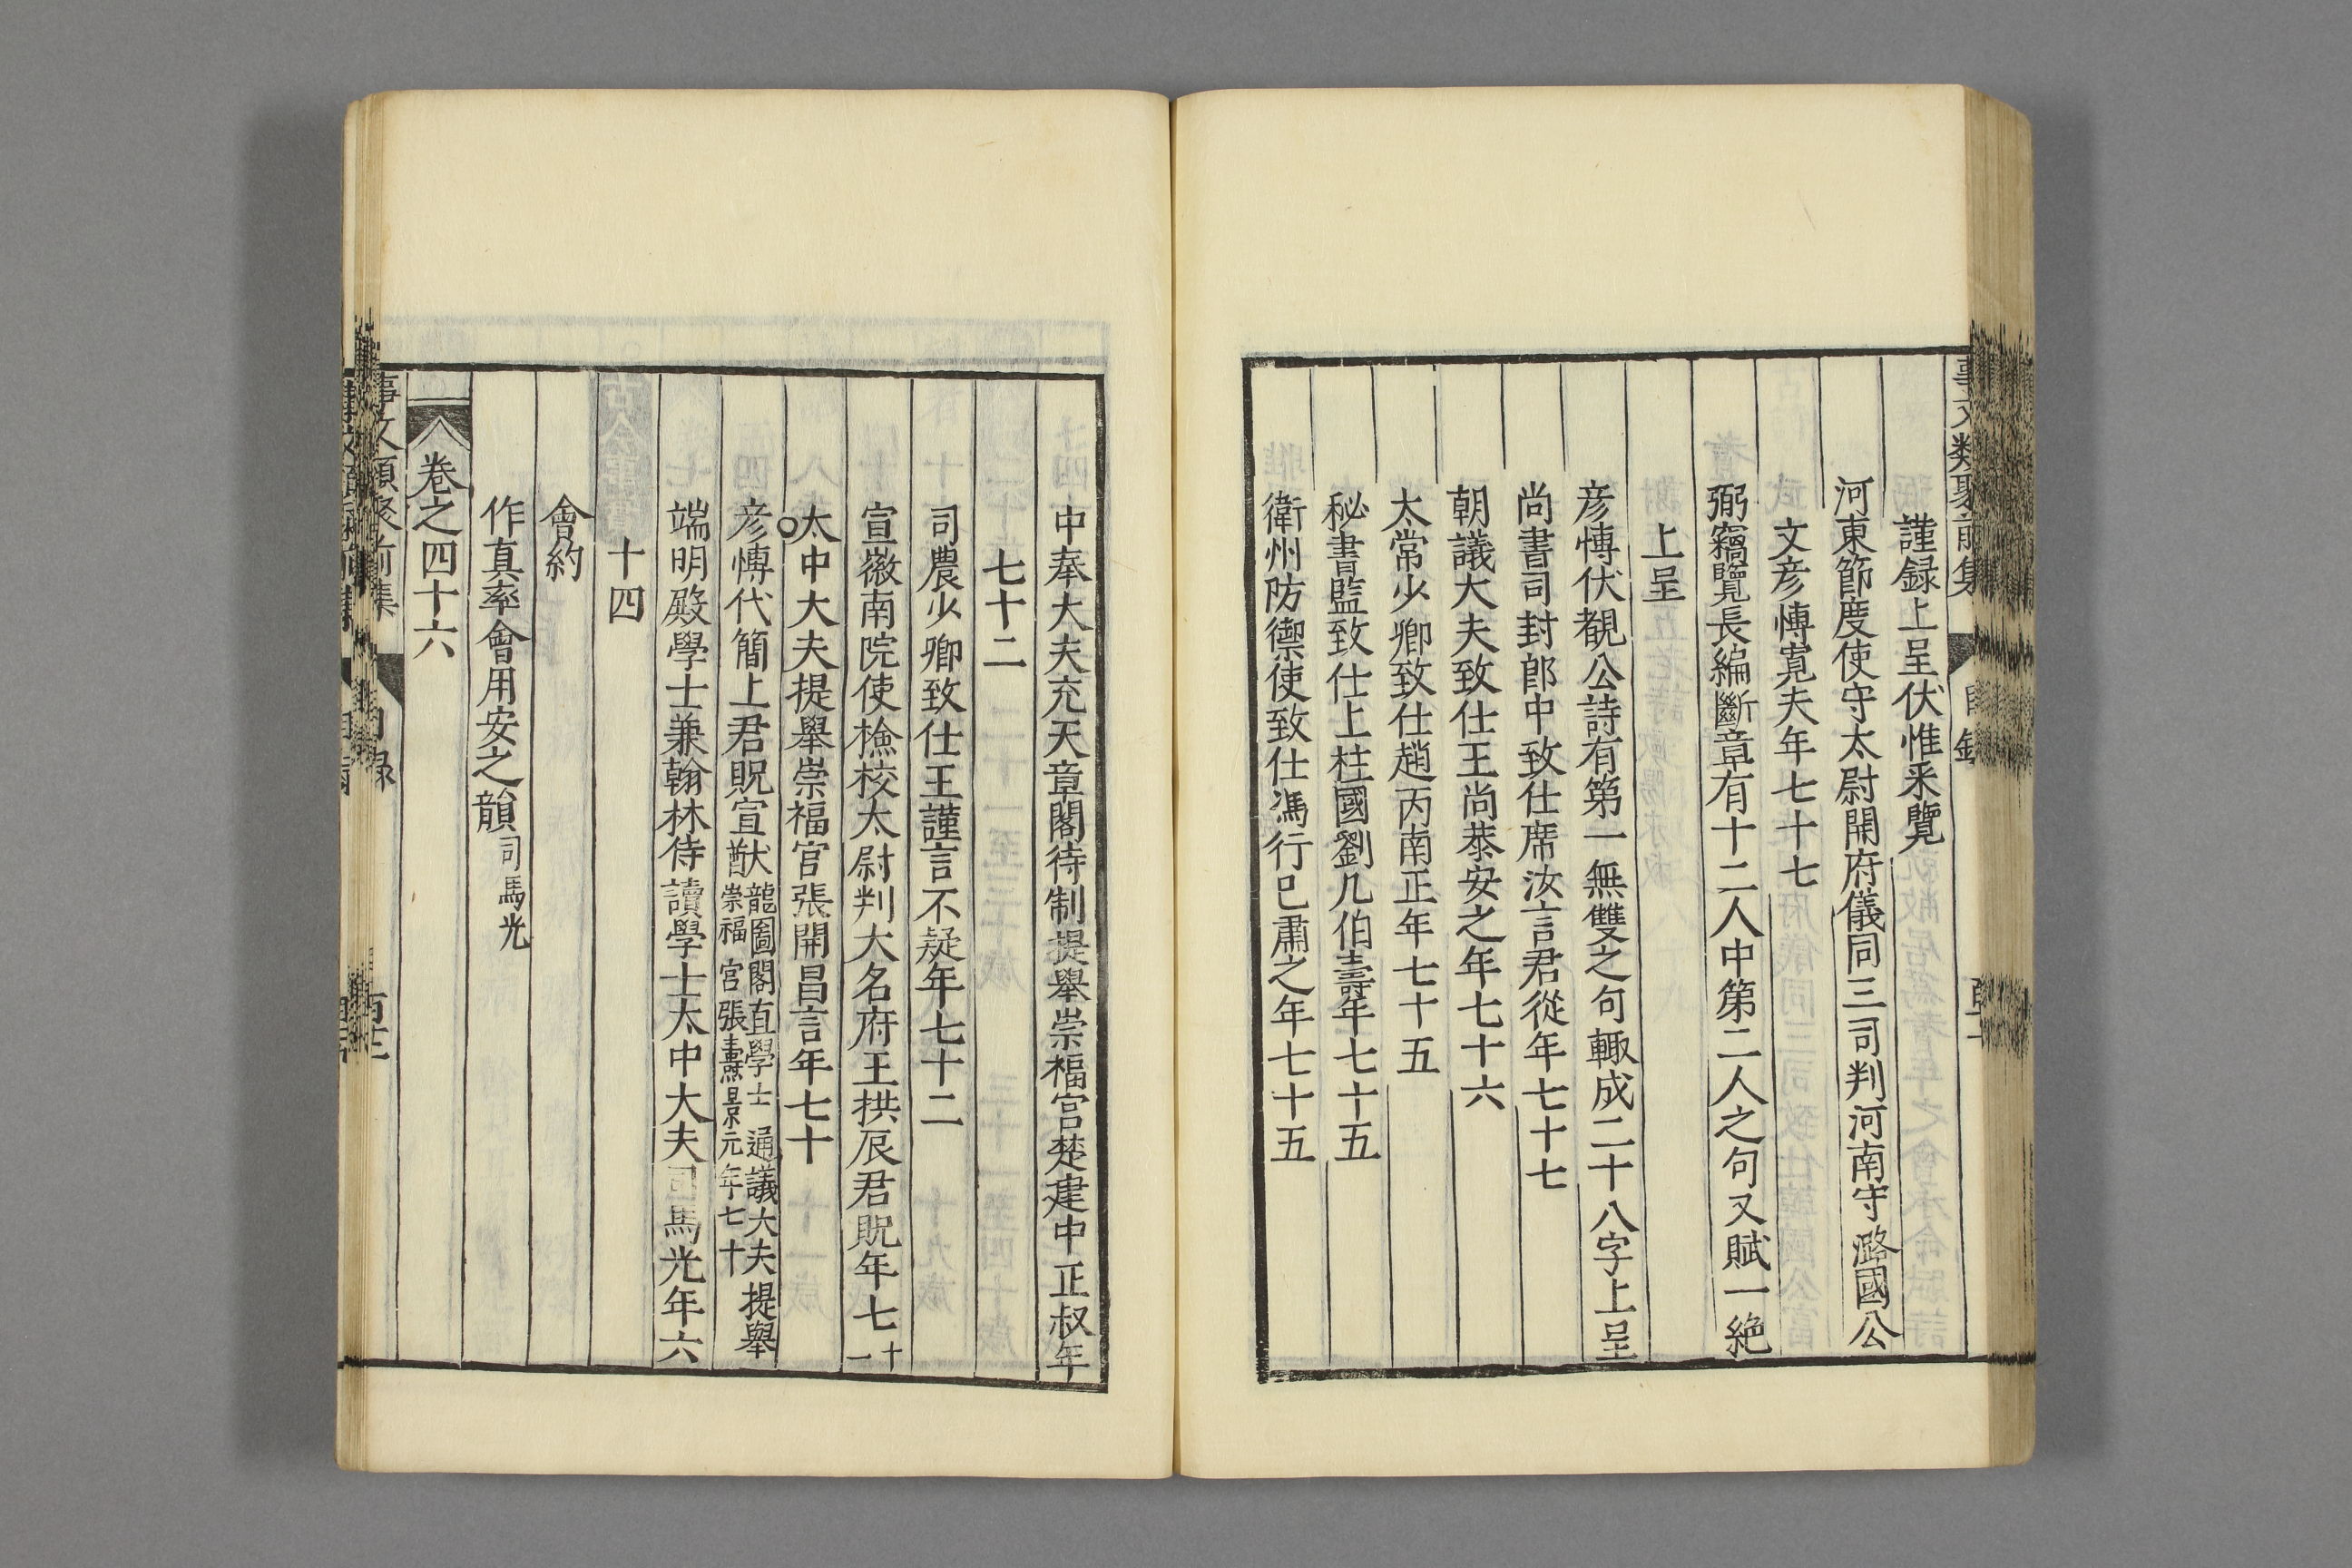 謹録上呈伏惟采覽
河東節度使守太尉開府儀同三司判河南守潞國公
文彦博寛夫年七十七
弼竊覽長編斷章有十二人中第二人之句又賦一絶
上呈
彦博伏覩公詩有第一無雙之句輙成二十八字上呈
尚書司封郎中致仕席汝言君從年七十七
朝議大夫致仕王尚恭安之年七十六
太常少卿致仕趙丙南正年七十五
秘書監致仕上柱國劉几伯壽年七十五
衛州防禦使致仕馮行已肅之年七十五
中奉大夫充天章閣待制提舉崇福宫楚建中正叔年
七十二
司農少卿致仕王謹言不疑年七十二
宣徽南院使檢校太尉判大名府王拱辰君貺年七十一
太中大夫提舉崇福宫張開昌言年七十
彦博代簡上君貺宣猷
龍圖閣直學士通議大夫提舉
崇福宮張燾景元年七十
端明殿學士兼翰林侍讀學士太中大夫司馬光年六
十四
會約
作真率會用安之韻司馬光
卷之四十六
事文類聚前集 目録